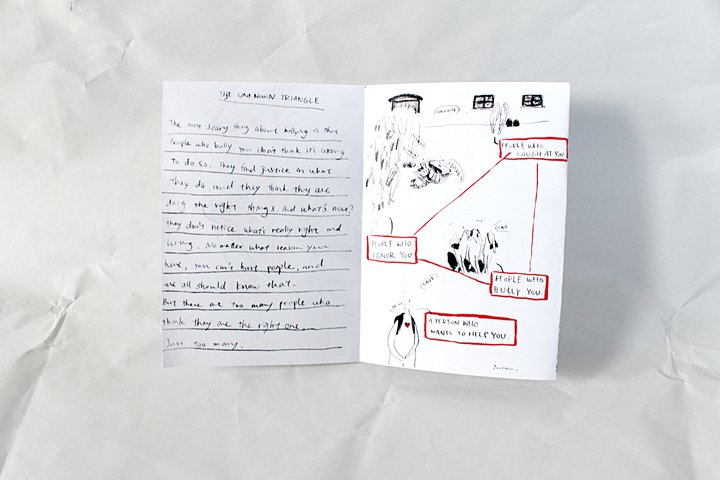 THE UNKNOWN TRIANGLE
The most scary thing about bullying is that
People who bully you don't think it's wrong
To do so. They find justice in what
They do, and they think they are
doing the right things. And what's more?
they don't notice what's really right and
wrong. No matter what reason you
have, you can't hurt people, and
we all should know that.
But there are too many people who
think they are the right one...
Just too many.
PEOPLE WHO
LAUGH AT YOU.
PEOPLE WHO
IGNOR YOU
PEOPLE WHO
BULLY YOU.
A PERSON WHO
WANTS TO HELP YOU.